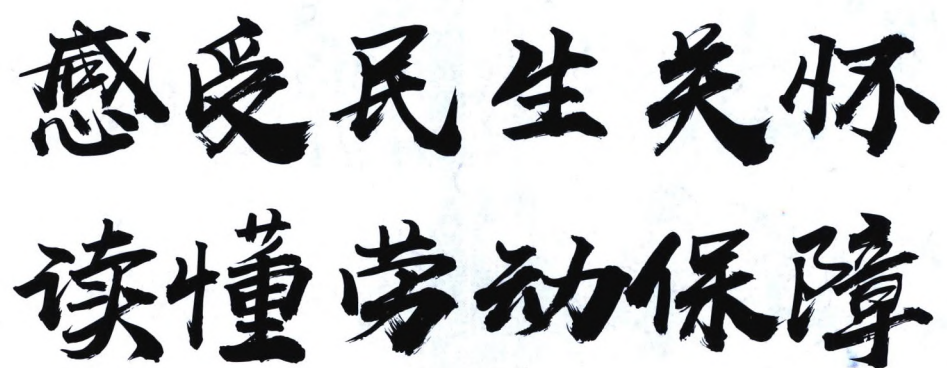 感受民生关怀
读懂劳动保障